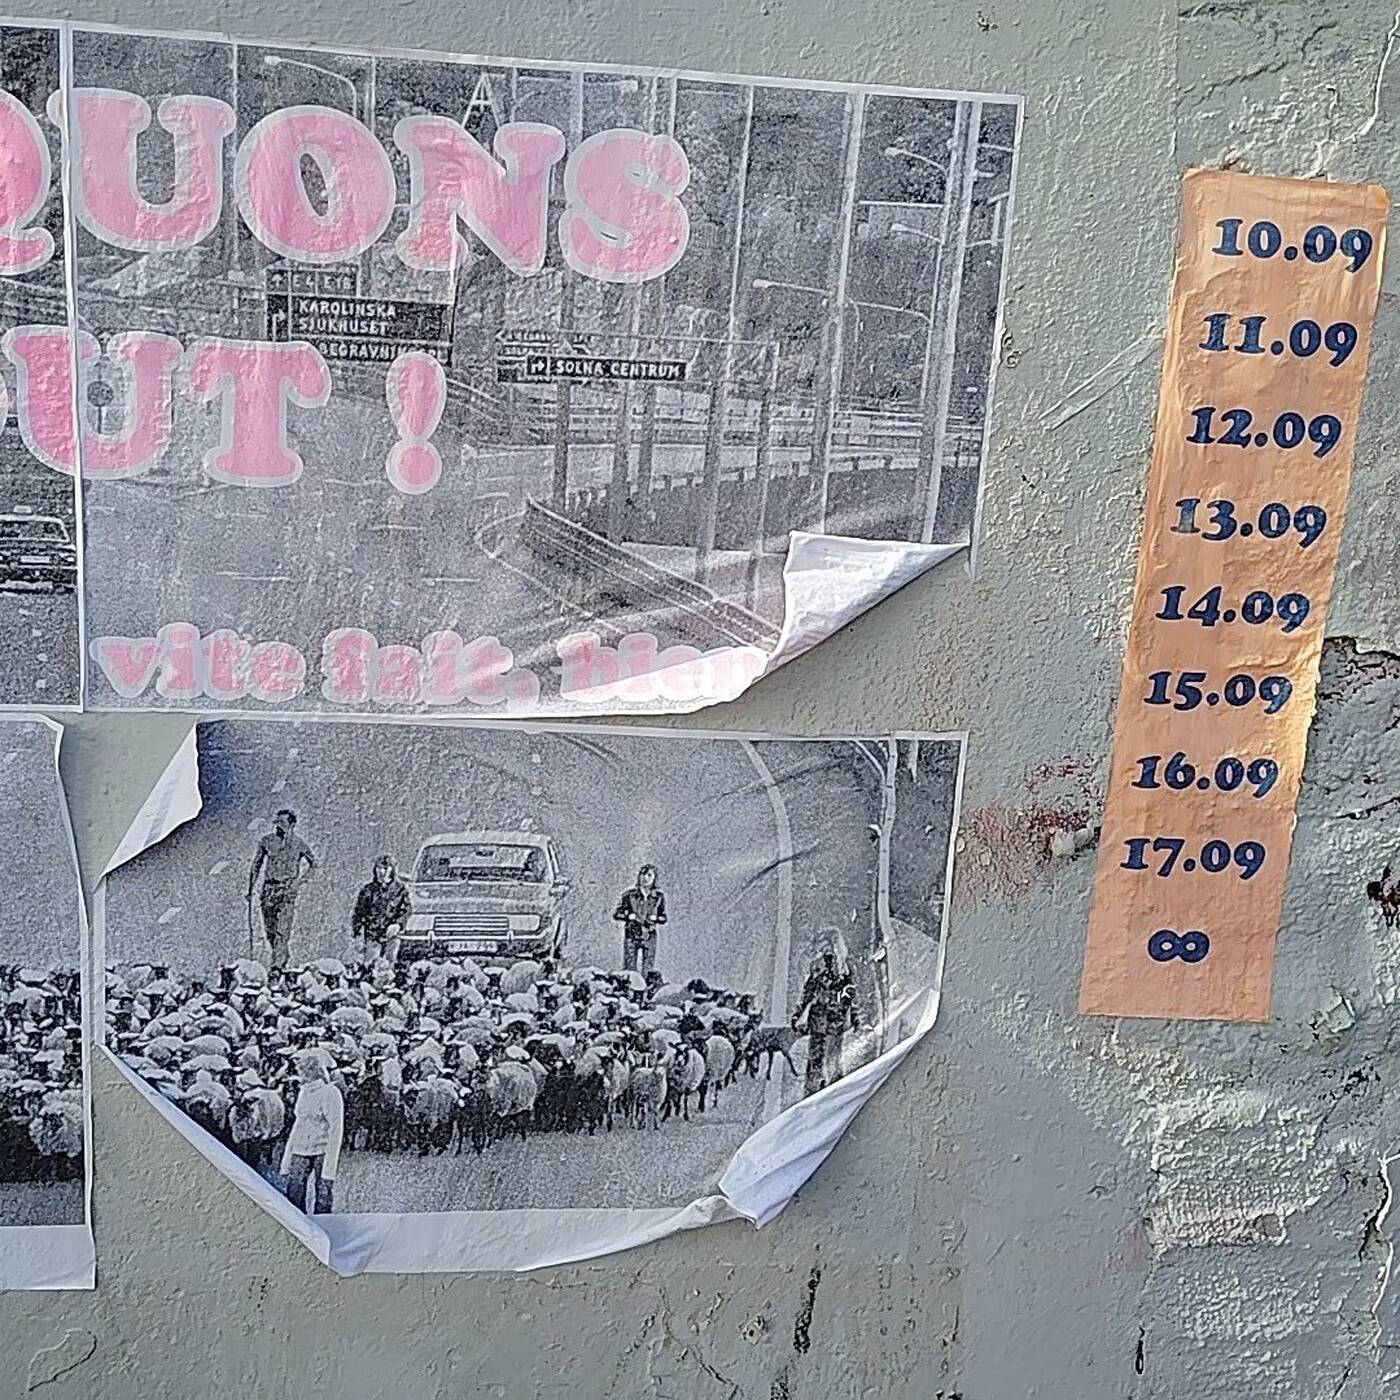 QUONS
OUT !
KAROLINSKA
SJUKHUSET
SOLNA CENTRUM
vite fait, bien
10.09
11.09
12.09
13.09
14.09
15.09
16.09
17.09
∞